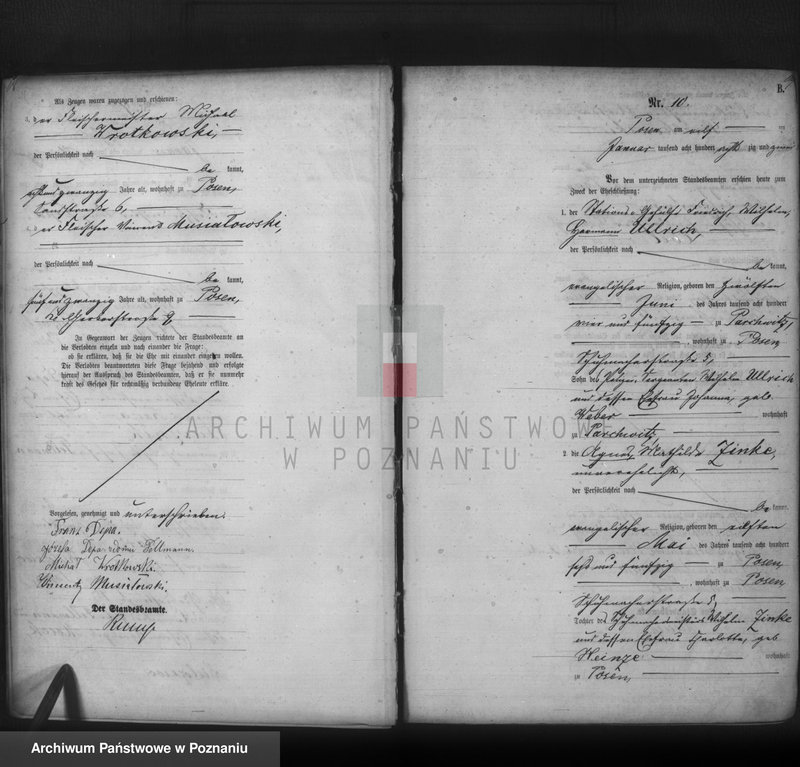 Als Zeugen waren zugezogen und erschienen:
3. der Fleischermeister Michael
Wrotkowski,
der Persönlichkeit nach
be kannt,
zwanzig Jahre alt, wohnhaft zu Posen,
Sandstraße 6,
4. der Fleischer Vincent Musiatowski,
der Persönlichkeit nach
be kannt,
fünf und zwanzig Jahre alt, wohnhaft zu Posen,
In Gegenwart der Zeugen richtete der Standesbeamte an
die Verlobten einzeln und nach einander die Frage:
ob sie erklären, daß sie die Ehe mit einander eingehen wollen.
Die Verlobten beantworteten diese Frage bejahend und erfolgte
hierauf der Ausspruch des Standesbeamten, daß er sie nunmehr
kraft des Gesetzes für rechtmäßig verbundene Eheleute erkläre.
Vorgelesen, genehmigt und unterschrieben.
Franz Depa.
Józefa Depa
Michał Wrotkowski.
Wincenty Musiatowski.
Der Standesbeamte.
B.
Nr. 10.
Posen am elf ten
Januar tausend acht hundert acht zig und zwei
Vor dem unterzeichneten Standesbeamten erschien heute zum
Zweck der Eheschließung:
1. der Stations-Gehülfe Friedrich Wilhelm
Hermann Ullrich,
der Persönlichkeit nach
be kannt,
evangelischer Religion, geboren den zwölften
Juni des Jahres tausend acht hundert
vier und fünfzig zu Parchwitz,
, wohnhaft zu Posen
Schuhmacherstraße 5,
Sohn des Wilhelm Ullrich
und dessen Ehefrau Johanna, geb.
Weber wohnhaft
zu Parchwitz
2. die Agnes Mathilde Zinke,
unverehelicht,
der Persönlichkeit nach
be kannt,
evangelischer Religion, geboren den elften
Mai des Jahres tausend acht hundert
sechs und fünfzig zu Posen,
, wohnhaft zu Posen
Schuhmacherstraße 5,
Tochter des Wilhelm Zinke
und dessen Ehefrau Charlotte, geb.
Heinze wohnhaft
zu Posen,
ARCHIWUM PAŃSTWOWE
W POZNANIU
Archiwum Państwowe w Poznaniu